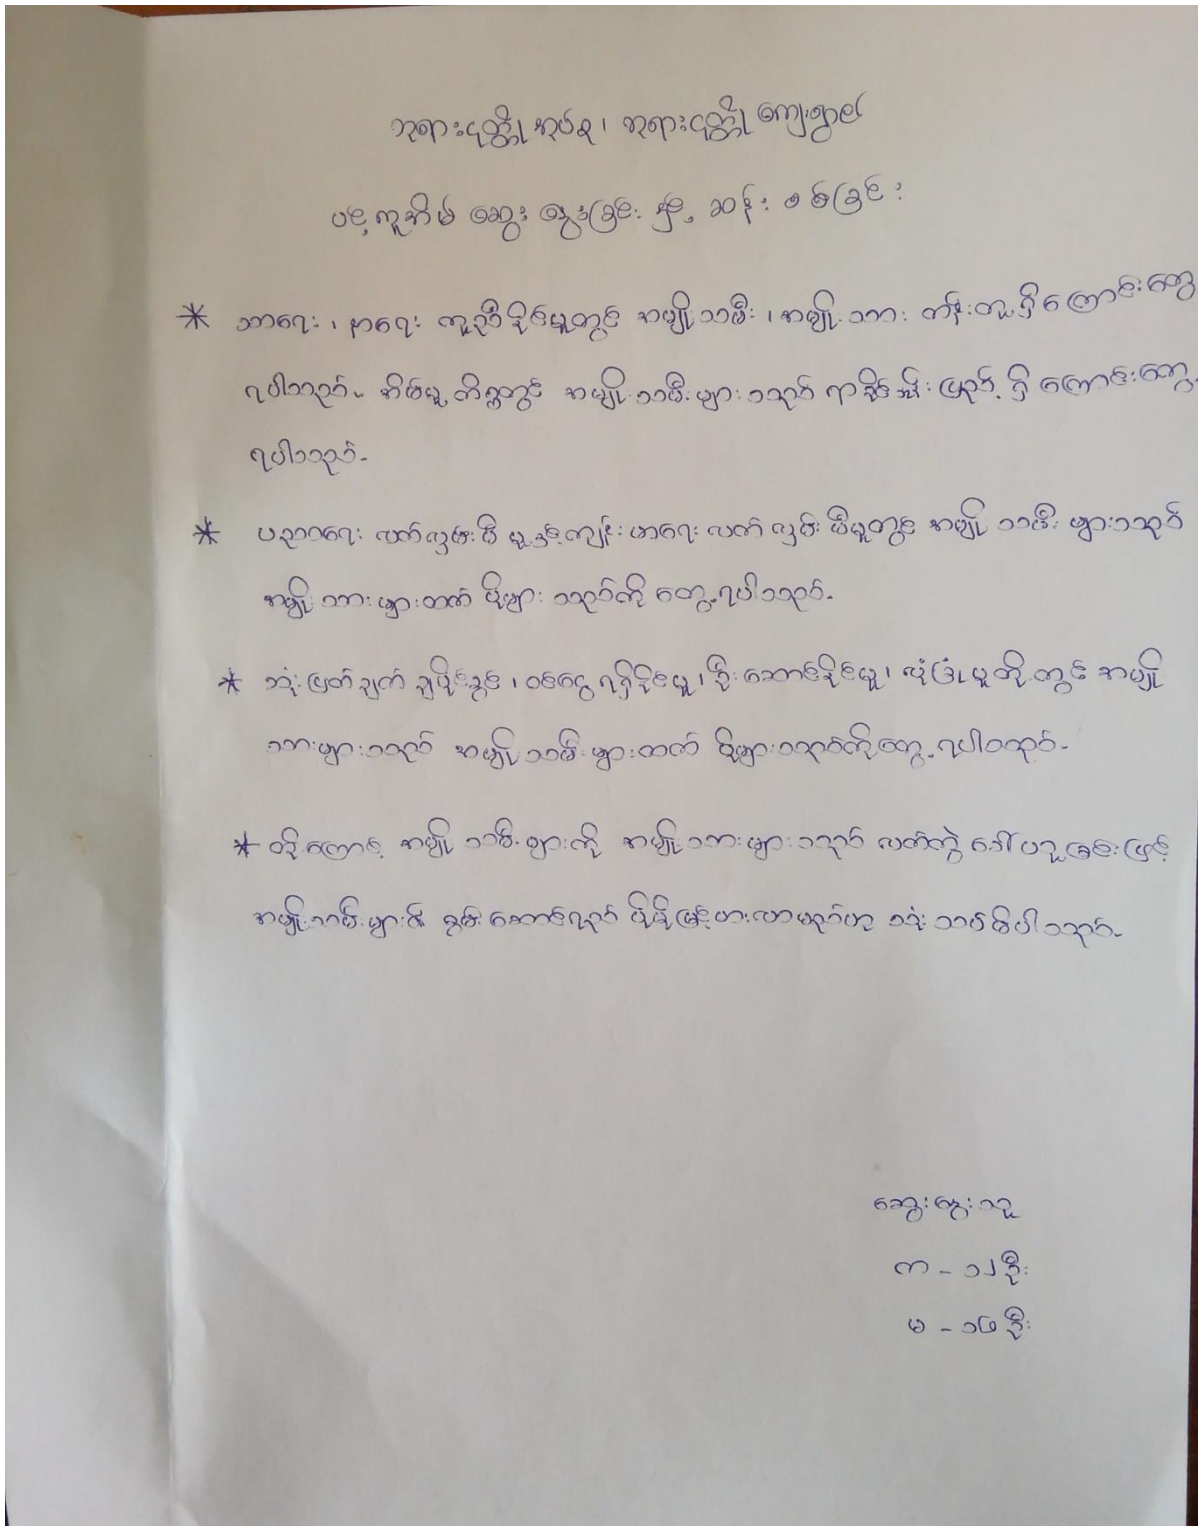 ဘုရားငုတ္တိုအုပ်စု၊ ဘုရားငုတ္တိုကျေးရွာ၏
ပင့်ကူအိမ် ဆွေးနွေးခြင်း နှင့် ဆန်းစစ်ခြင်း
* သာရေး၊ နာရေး ကူညီနိုင်မှုတွင် အမျိုးသမီး၊ အမျိုးသား တန်းတူရှိကြောင်းတွေ့
ရပါသည်။ အိမ်မှုကိစ္စတွင် အမျိုးသမီးများသည် ရာခိုင်နှုံးပြည့်ရှိကြောင်းတွေ့
ရပါသည်။
* ပညာရေး လက်လှမ်းမီမှုနှင့်ကျန်းမာရေး လက်လှမ်းမီမှုတွင် အမျိုးသမီးများသည်
အမျိုးသားများထက် ပိုများသည်ကို တွေ့ရပါသည်။
* ဆုံးဖြတ်ချက်ချပိုင်ခွင့်၊ ဝင်ငွေရရှိနိုင်မှု၊ ဦးဆောင်နိုင်မှု၊ လုံခြုံမှုတို့တွင် အမျိုး
သားများသည် အမျိုးသမီးများထက် ပိုများသည်ကိုတွေ့ရပါသည်။
* တို့ကြောင့် အမျိုးသမီးများကို အမျိုးသားများသည် လက်တွဲခေါ်ယူခြင်းဖြင့်
အမျိုးသမီးများ၏ စွမ်းဆောင်ရည် ပိုမိုမြင့်မားလာမည်ဟု သုံးသပ်မိပါသည်။
ဆွေးနွေးသူ
က - ၁၂ဦး
မ - ၁၆ဦး